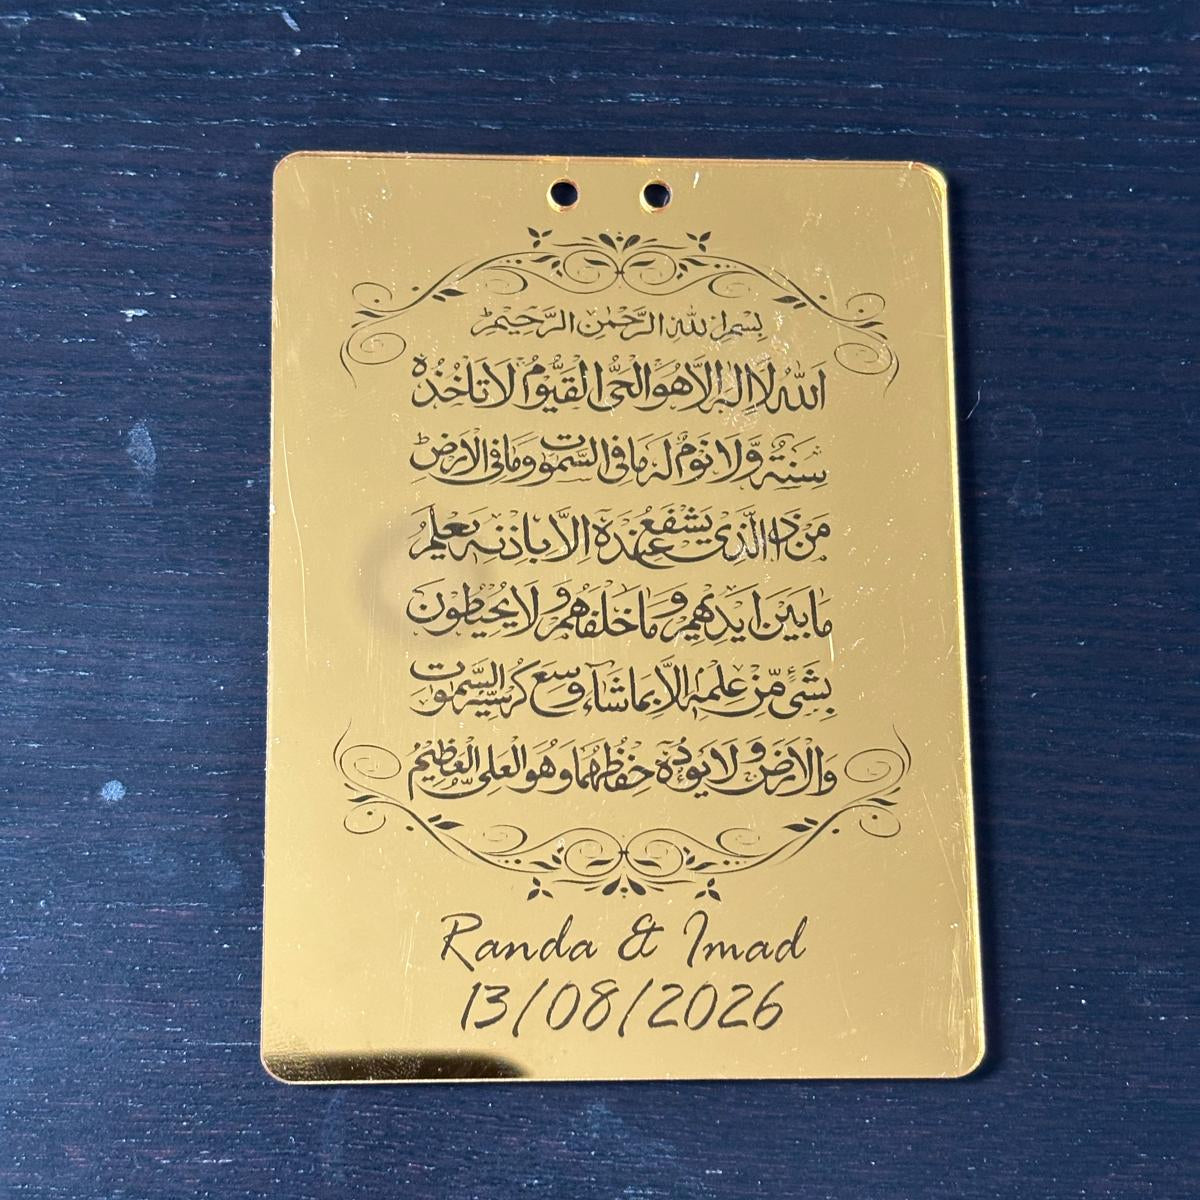 بسم الله الرحمن الرحيم
الله لا اله الا هو الحي القيوم لا تاخذه
سنة ولا نوم له ما في السموت وما في الارض
من ذا الذي يشفع عنده الا باذنه يعلم
ما بين ايديهم وما خلفهم ولا يحيطون
بشيء من علمه الا بما شاء وسع كرسيه السموت
والارض ولا يوده حفظهما وهو العلي العظيم
Randa & Imad
13/08/2026